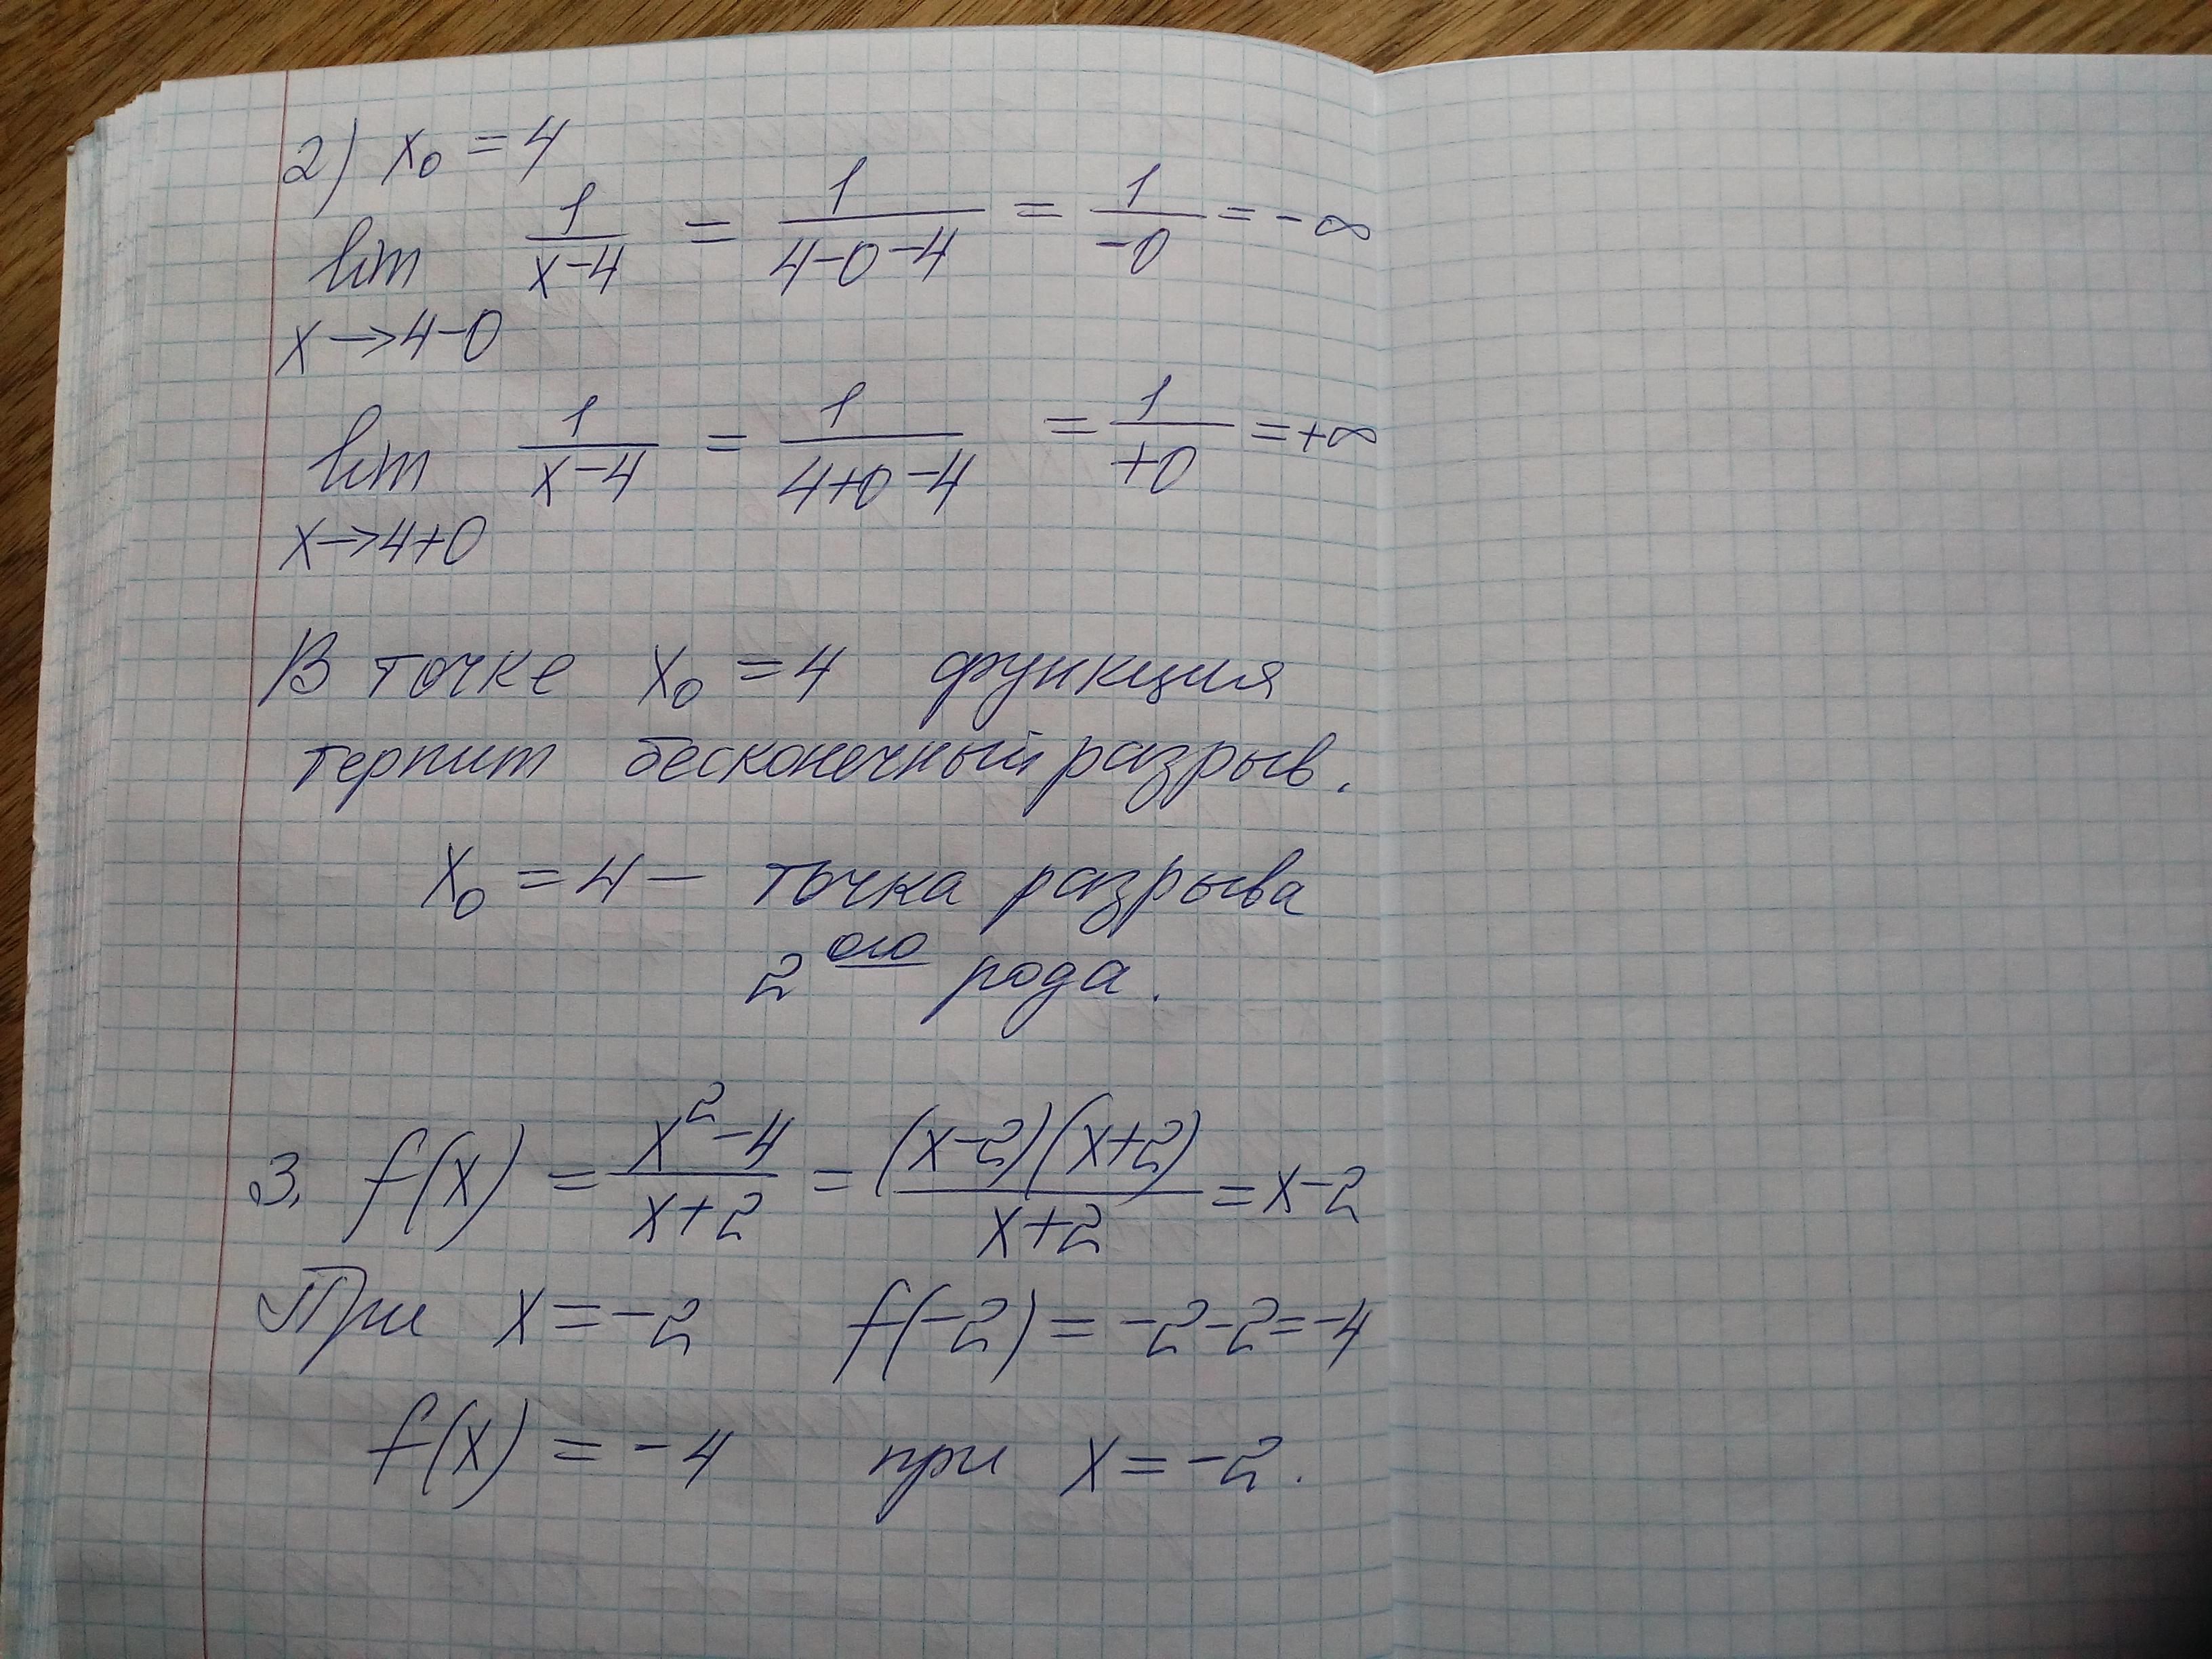 2) x₀ = 4
lim 1/(x-4) = 1/(4-0-4) = 1/(-0) = -∞
x→4-0
lim 1/(x-4) = 1/(4+0-4) = 1/(+0) = +∞
x→4+0
В точке x₀ = 4 функция
терпит бесконечный разрыв.
x₀ = 4 — точка разрыва
2ого рода.
3. f(x) = (x²-4)/(x+2) = (x-2)(x+2)/(x+2) = x-2
При x = -2 f(-2) = -2-2 = -4
f(x) = -4 при x = -2.